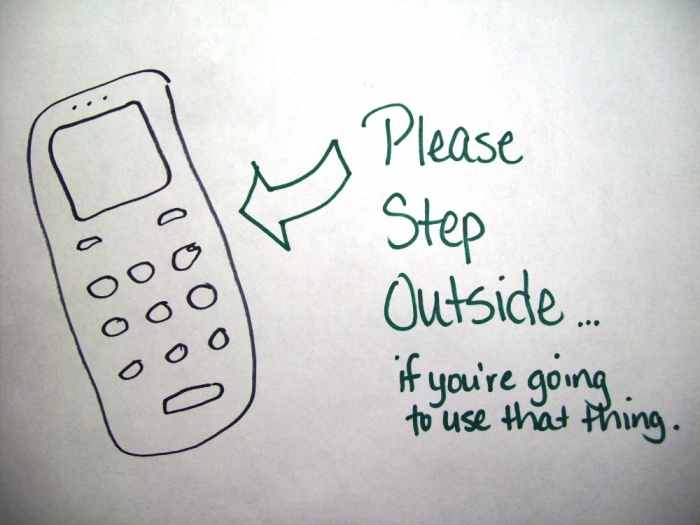 Please
Step
Outside...
if you're going
to use that thing.